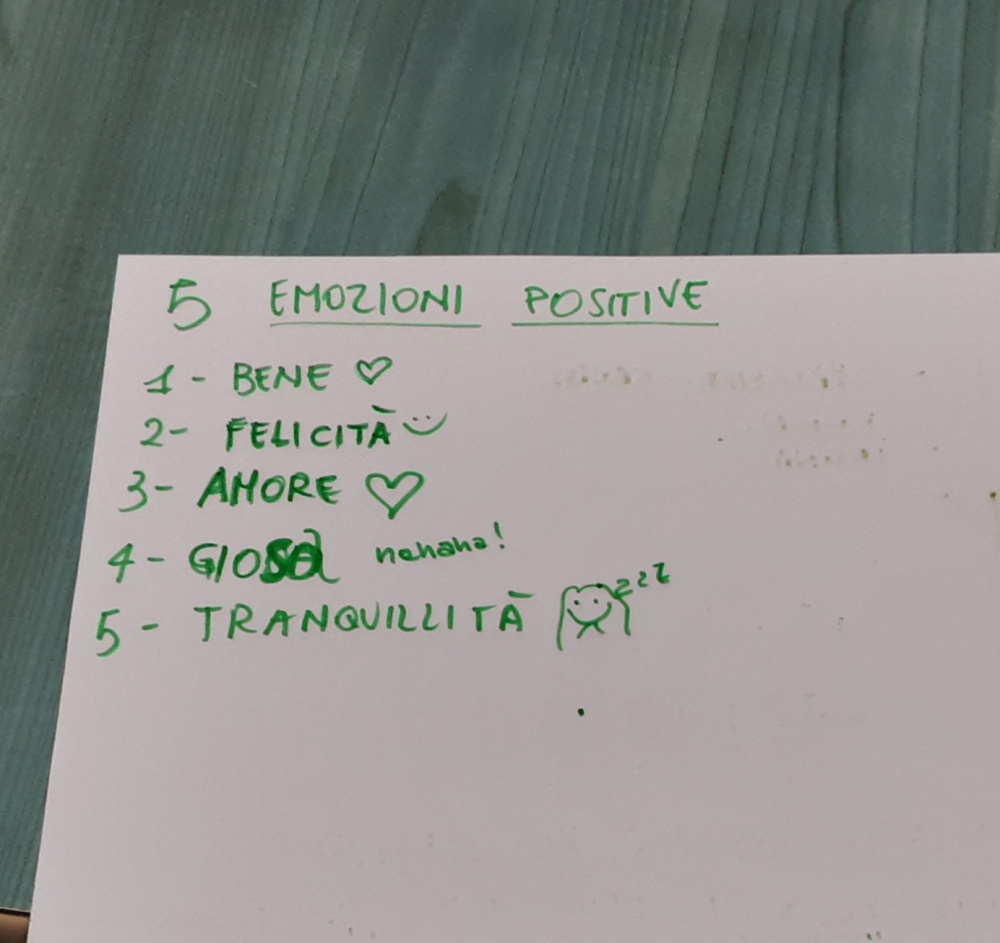 5 EMOZIONI POSITIVE
1 - BENE ♡
2- FELICITÀ
3- AMORE ♡
4 -
5 - TRANQUILLITÀ zzz